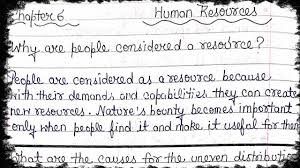 Chapter 6 Human Resources
Why are people considered a resource?
People are considered as a resource because
with their demands and capabilities they can create
new resources. Nature's bounty becomes important
only when people find it and make it useful for them
What are the causes for the uneven distribution